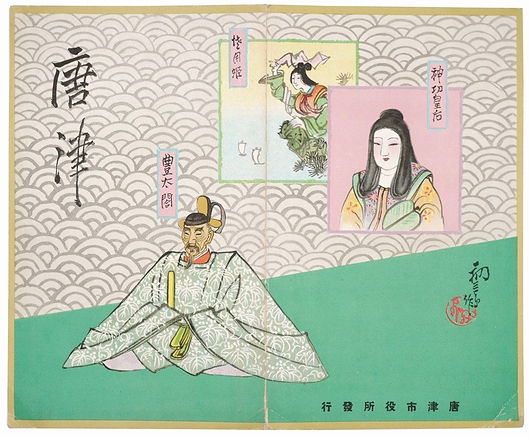 神功皇后
佐用姫
豊太閤
唐津
唐津市役所發行